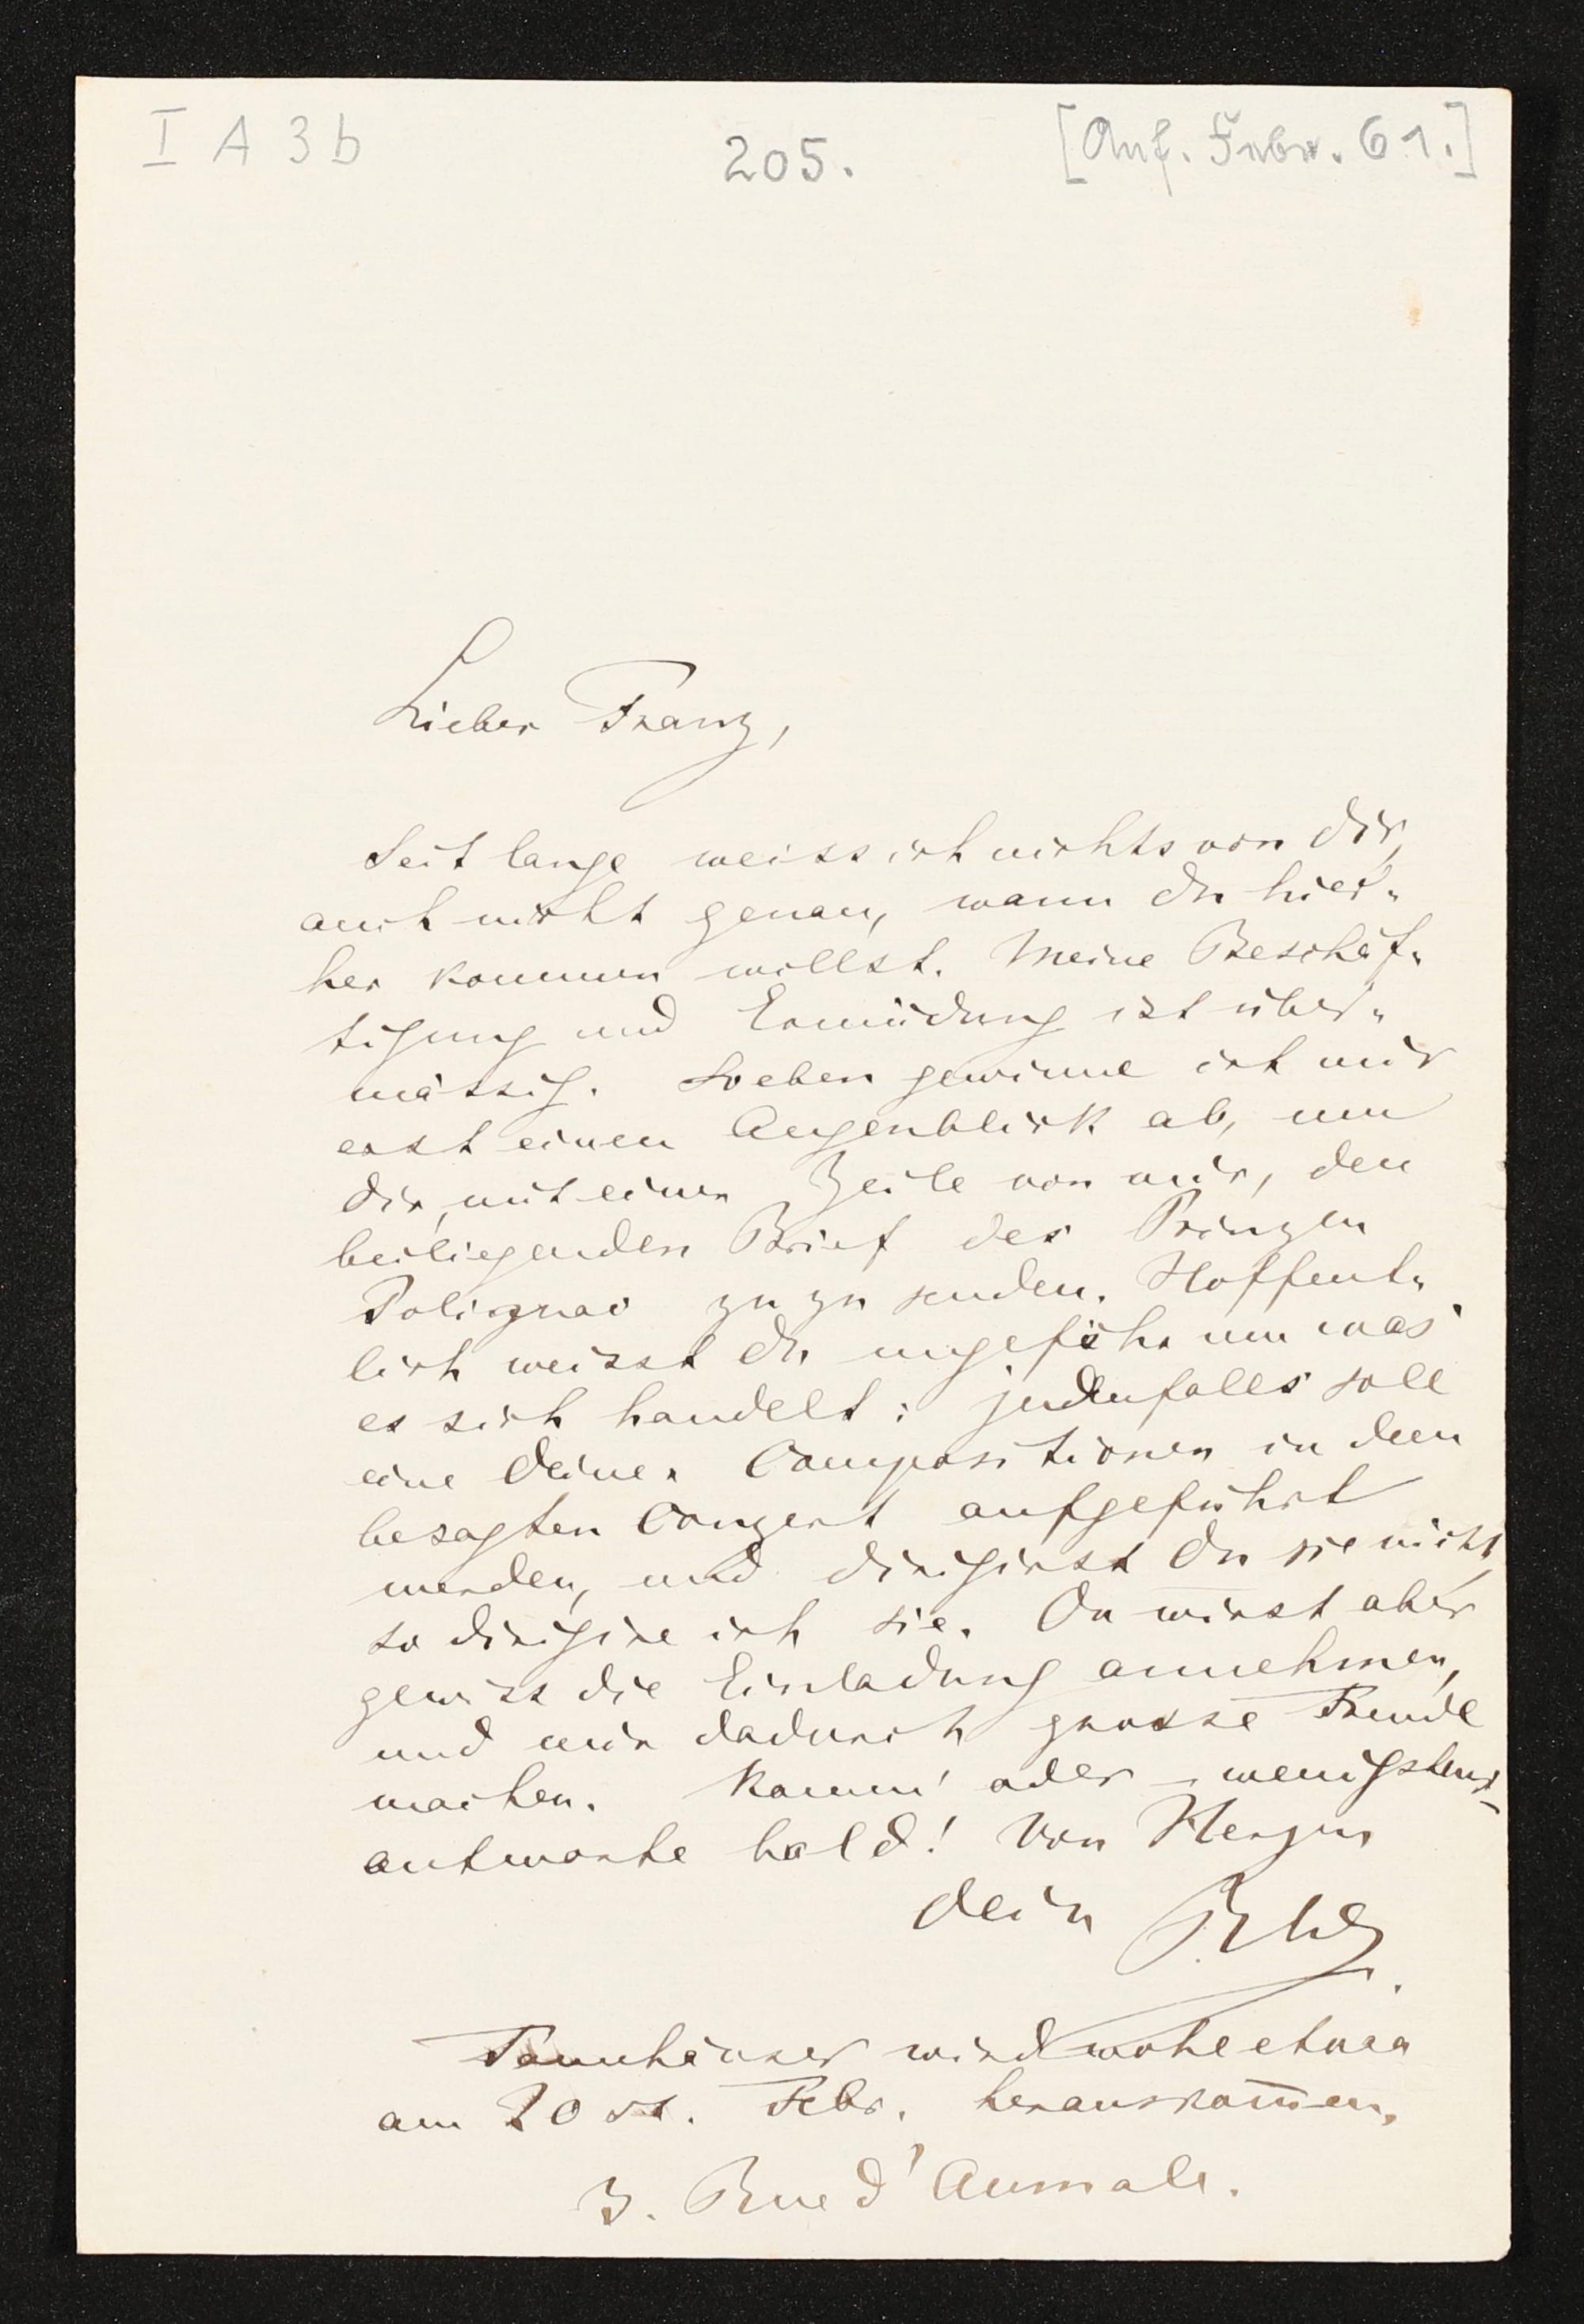 I A 3 b
205.
[Anf. Febr. 61.]
Lieber Franz,
Seit lange weiss ich nichts von dir,
auch nicht genau, wann du hier-
her kommen willst. Meine Beschäf-
tigung und Ermüdung ist über-
mässig. Soeben gewinne ich mir
erst einen Augenblick ab, um
dir, mit einer Zeile von mir, den
beiliegenden Brief des Prinzen
Polignac zu zu senden. Hoffent-
lich weisst du ungefähr um was
es sich handelt: jedenfalls soll
eine deiner Compositionen in dem
besagten Conzert aufgeführt
werden, und dirigirst du sie nicht,
so dirigire ich sie. Du wirst aber
gewiss die Einladung annehmen,
und mir dadurch grosse Freude
machen. Komm' oder – wenigstens –
antworte bald! Von Herzen
dein RW.
Tannhäuser wird wohl etwa
am 20 st. Febr. herauskom̄en.
3. Rue d'Aumale.